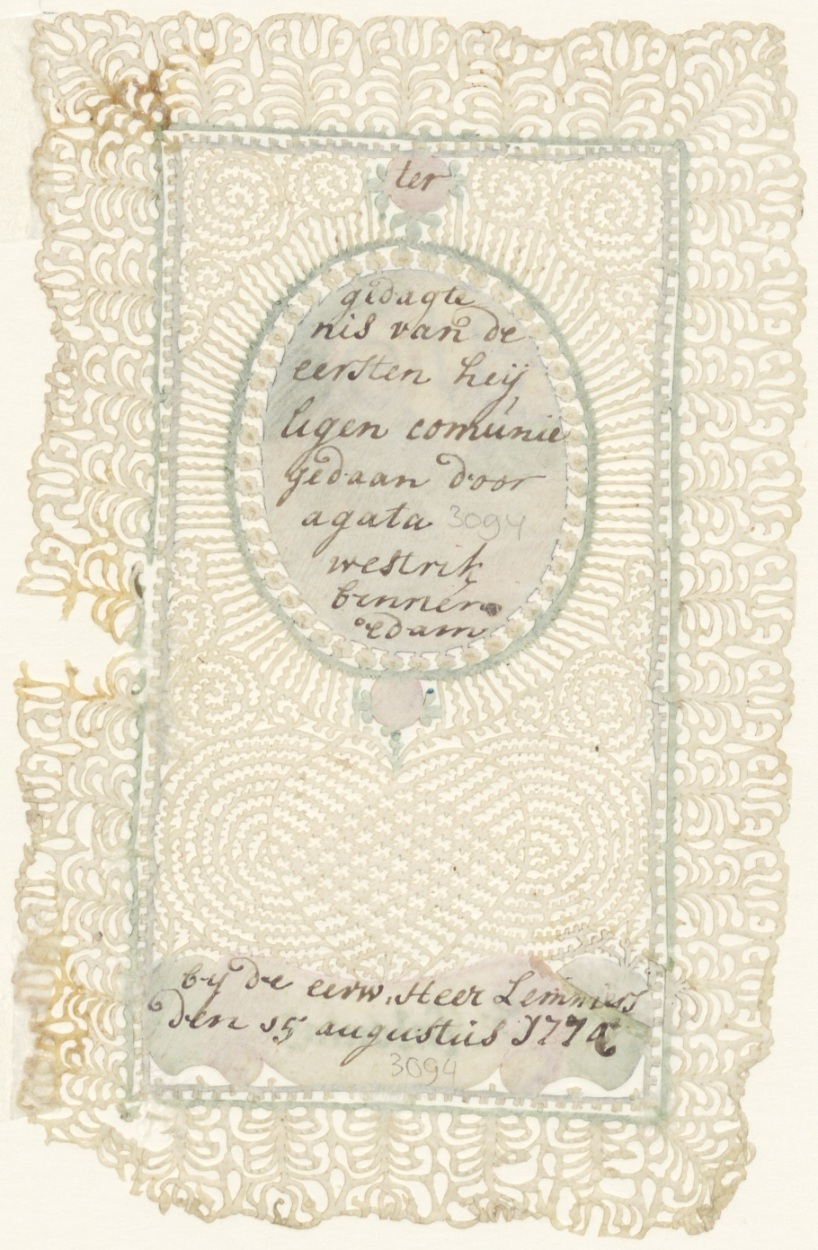 ter
gedagte
nis van de
eersten heij
ligen comunie
gedaan door
agata 3094
westrik
binnen
edam
bij de eerw. Heer
den 15 augustus
3094